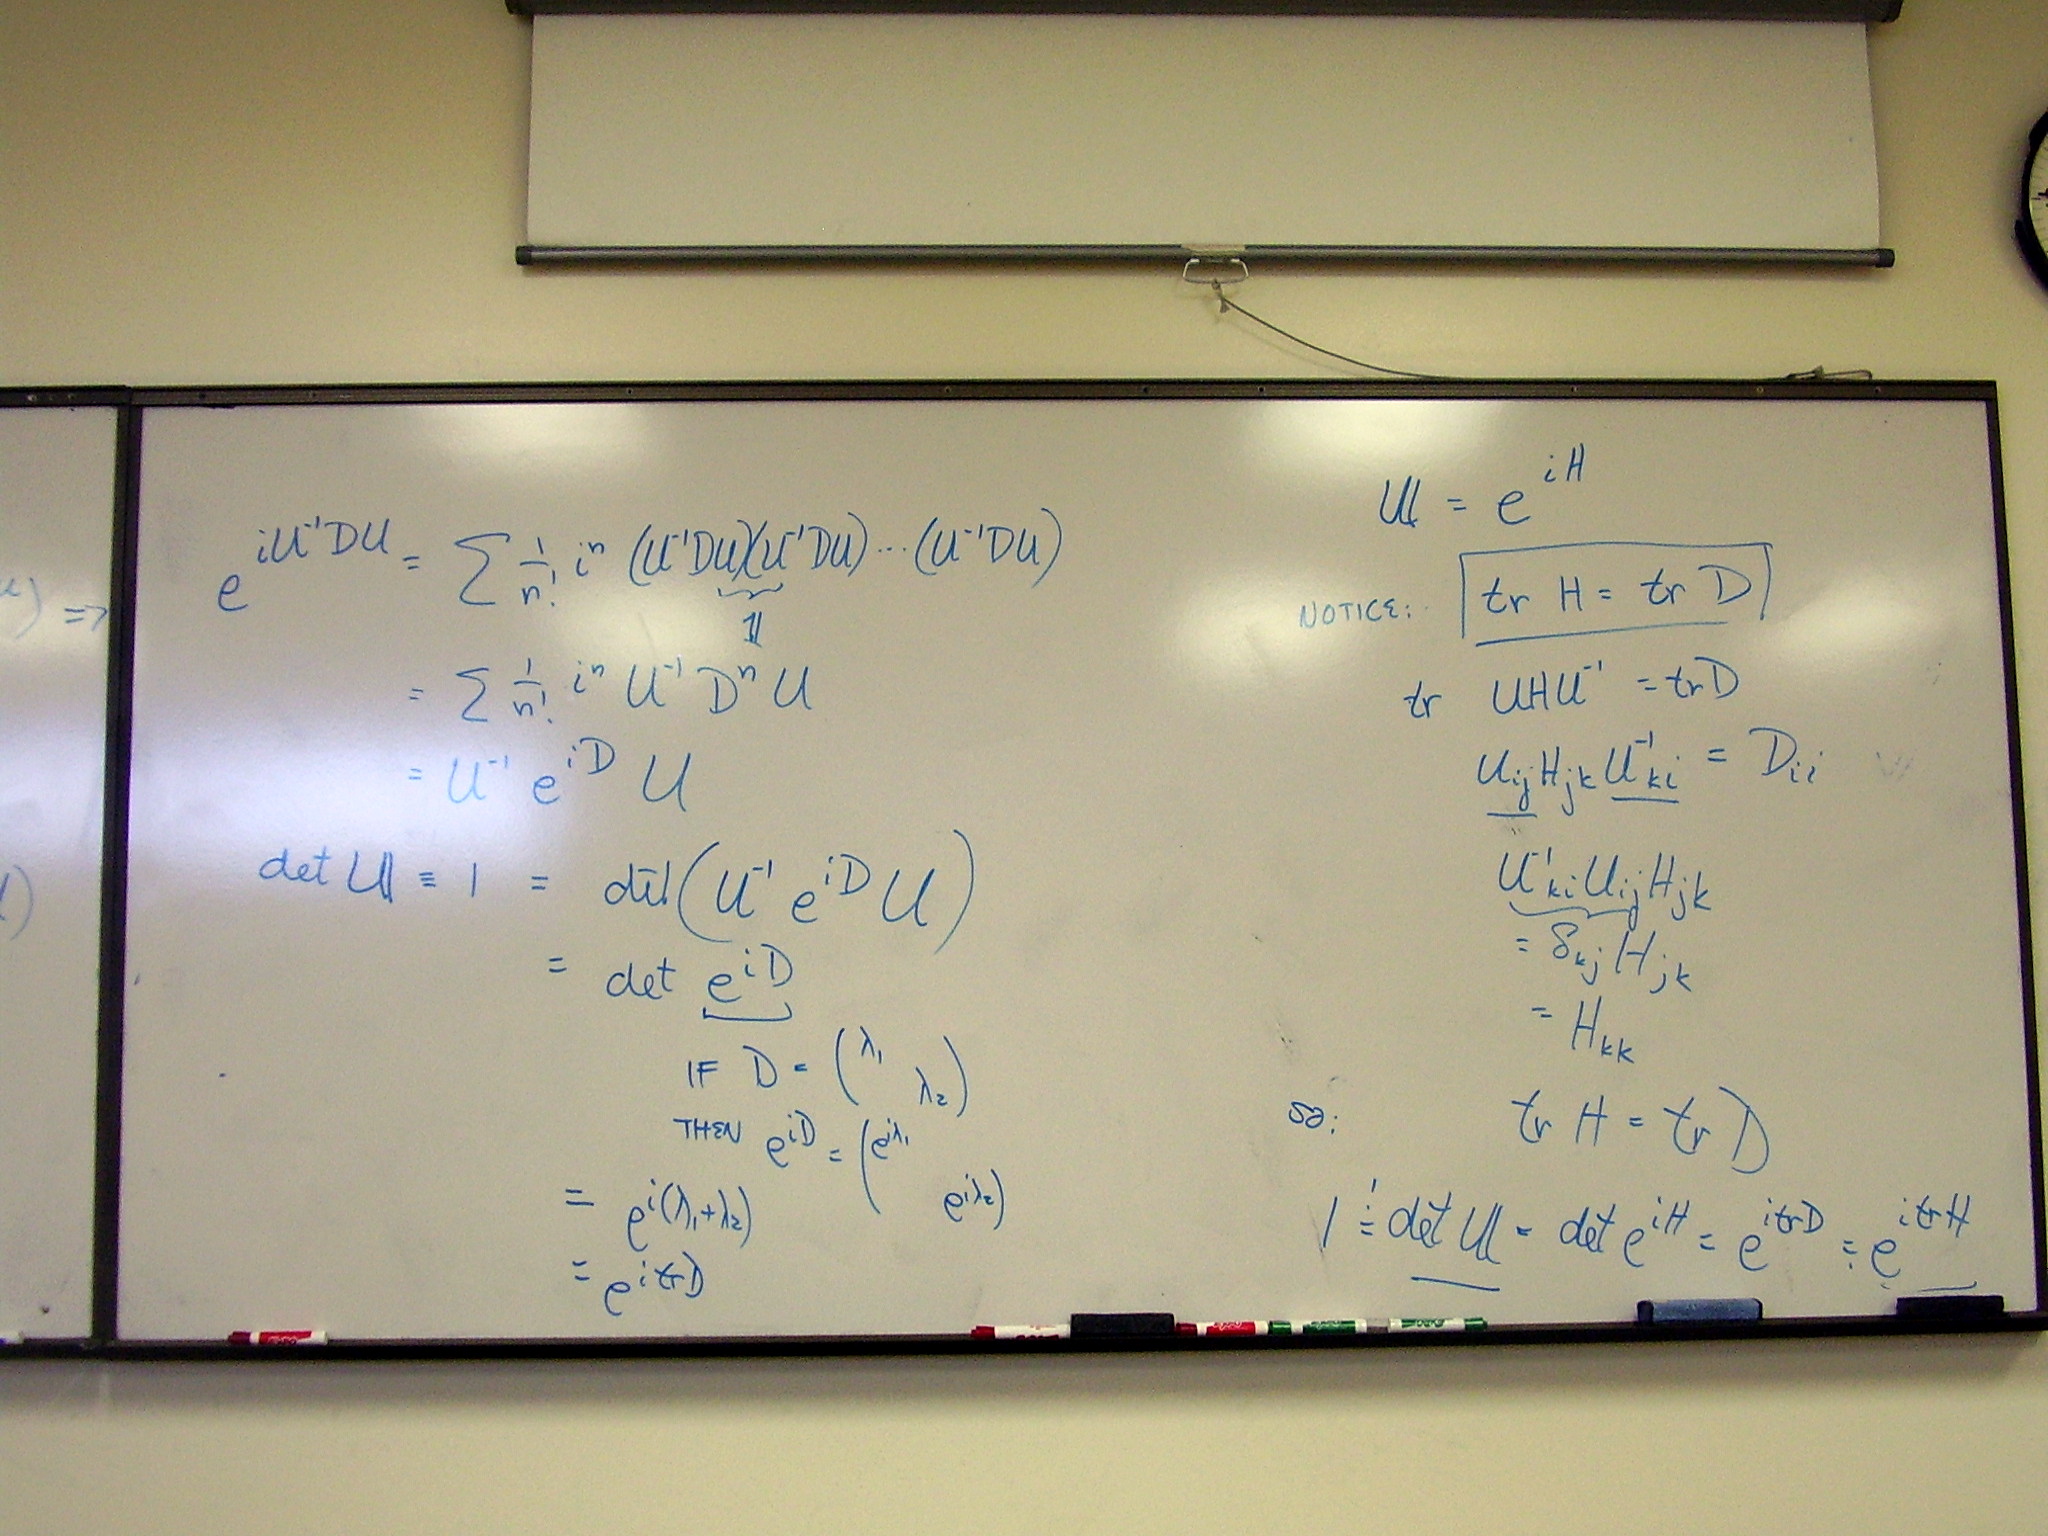 ) =>
)
e^{iU^{-1}DU} = ∑ 1/n! i^n (U^{-1}DU)(U^{-1}DU) ... (U^{-1}DU)
𝟙
= ∑ 1/n! i^n U^{-1} D^n U
= U^{-1} e^{iD} U
det 𝕌 ≡ 1 = det(U^{-1} e^{iD} U)
= det e^{iD}
IF D = (λ₁ λ₂)
THEN e^{iD} = (e^{iλ₁} e^{iλ₂})
= e^{i(λ₁+λ₂)}
= e^{i tr D}
𝕌 = e^{iH}
NOTICE: tr H = tr D
tr UHU^{-1} = tr D
U_{ij} H_{jk} U^{-1}_{ki} = D_{ii}
U^{-1}_{ki} U_{ij} H_{jk}
= δ_{kj} H_{jk}
= H_{kk}
so: tr H = tr D
1 = det 𝕌 = det e^{iH} = e^{i tr D} = e^{i tr H}